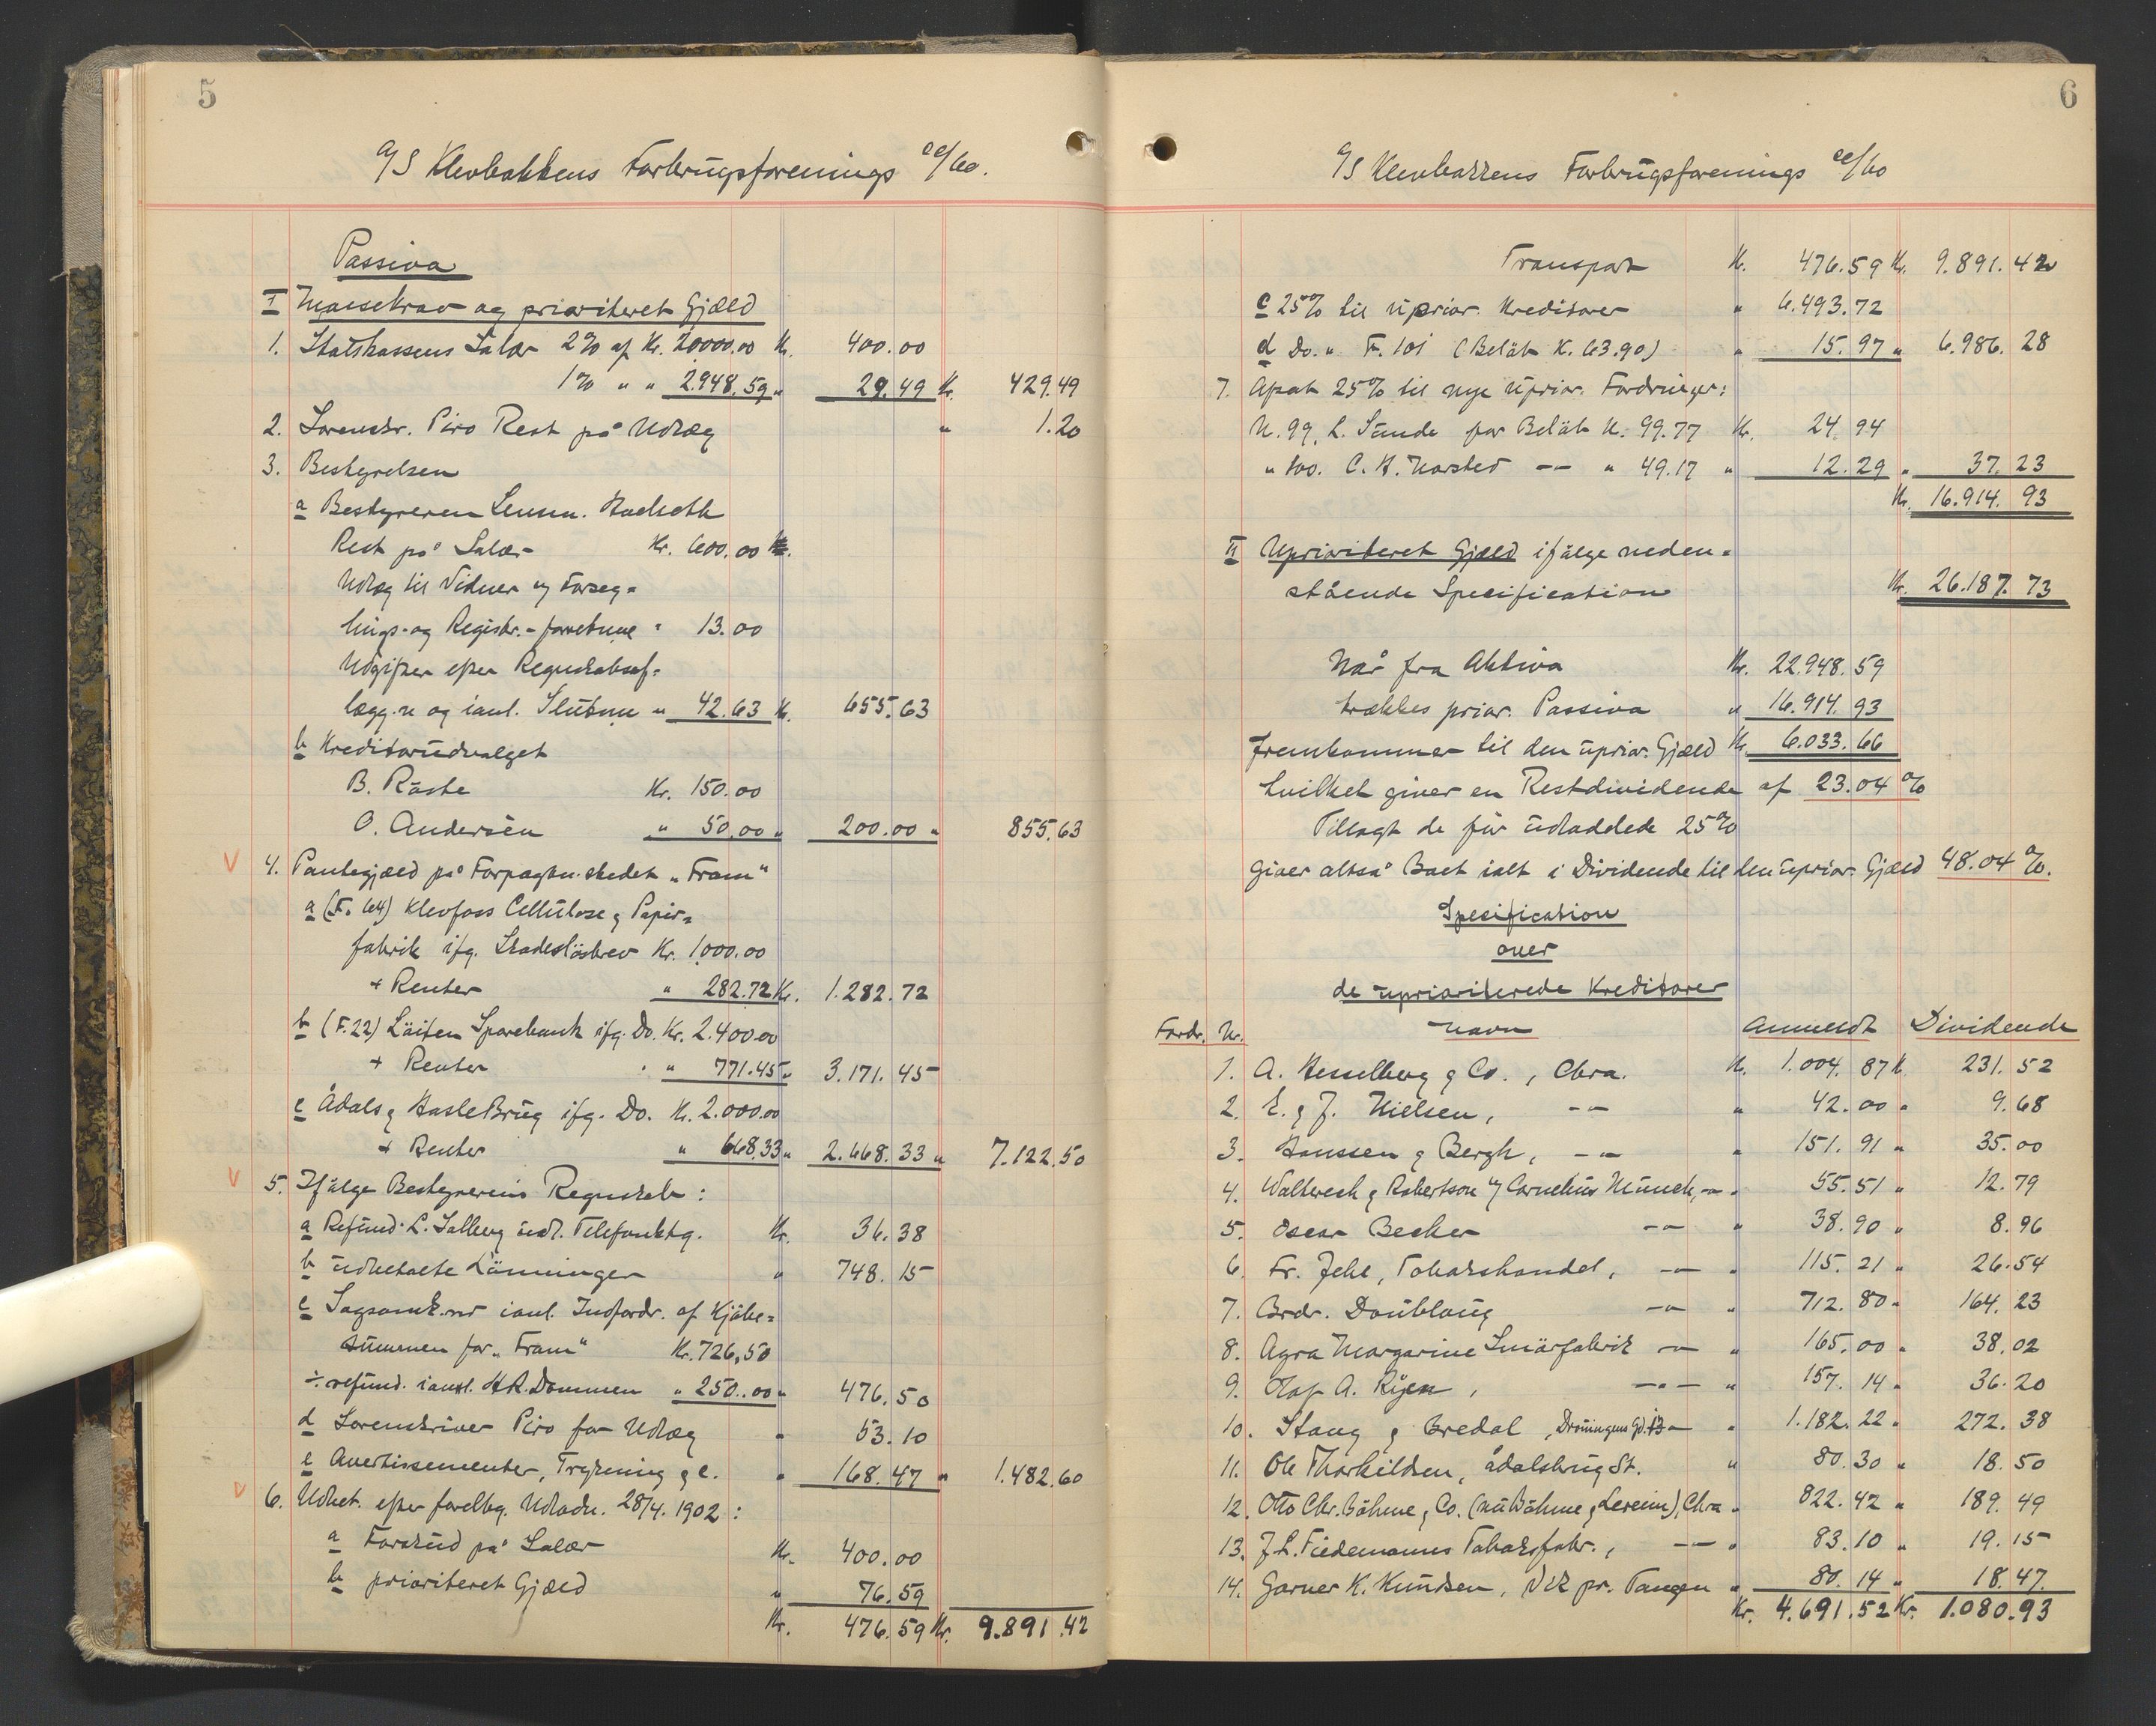 5
A/S Klevbakkens Forbrugsforenings co/bo.
Passiva
I Massekrav og prioriteret Gjæld
1. Statskassens Salær 2% af Kr. 20000.00 Kr. 400.00
1% " " 2.948.59 " 29.49 Kr. 429.49
2. Sorenskr. Piro Rest på Udlæg " 1.20
3. Bestyrelsen
a Bestyreren Lensm.
Rest på Salær Kr. 600.00
Udlæg til Vidner og Forseg=
lings- og Registr.-forretn. " 13.00
Udgifter efter Regnskabsaf=
lægg.n og ianl. Slutn. " 42.63 Kr. 655.63
b Kreditorudvalget
B. Råste Kr. 150.00
O. Andersen " 50.00 " 200.00 " 855.63
V 4. Pantegjæld på Forpagtn.stedet „Fram“
a (F. 64) Klevfoss Cellulose & Papir=
fabrik ifg. Skadesløsbrev Kr. 1.000.00
+ Renter " 282.72 Kr. 1.282.72
b (F. 22) Løiten Sparebank ifg. Do. Kr. 2.400.00
+ Renter " 771.45 " 3.171.45
c Ådals & Hasle Brug ifg. Do. Kr. 2.000.00
+ Renter " 668.33 " 2.668.33 " 7.122.50
V 5. Ifølge Bestyrerens Regnskab:
a Refund. L. Salberg udl. Telefonktg. Kr. 36.38
b udbetalte Lønninger " 748.15
c Sagsomk.ner ianl. Indfordr. af Kjøbe=
summen for „Fram“ Kr. 726,50
÷ refund. ianl. H.R. Dommen " 250.00 " 476.50
d Sorenskriver Piro for Udlæg " 53.10
e Avertissementer, Trykning & c. " 168.47 " 1.482.60
V 6. Udbet. efter forelbg. Udlodn. 28/4. 1902:
a Forskud på Salær Kr. 400.00
b prioriteret Gjæld " 76.59
Kr. 476.59 Kr. 9.891.42
6
A/S Klevbakkens Forbrugsforenings co/bo
Transport Kr. 476.59 Kr. 9.891.42
c 25% til uprior. Kreditorer " 6.493.72
d Do. " F. 101 (Beløb K. 63.90) " 15.97 " 6.986.28
7. Afsat 25% til nye uprior. Fordringer:
N. 99, L. Sunde for Beløb K. 99.77 Kr. 24.94
" 100. C. H. Norsted -"- " 49.17 " 12.29 " 37.23
Kr. 16.914.93
II Uprioriteret Gjæld ifølge neden=
stående Specification Kr. 26.187.73
Når fra Aktiva Kr. 22.948.59
trækkes prior. Passiva " 16.914.93
fremkommer til den uprior. Gjæld Kr. 6.033.66
hvilket giver en Restdividende af 23.04 %
Tillagt de før udloddede 25%
giver altså Boet ialt i Dividende til den uprior. Gjæld 48.04 %.
Specification
over
de uprioriterede Kreditorer
Fordr. Nr. Navn Anmeldt Dividende
1. A. Hesselberg & Co., Chra. Kr. 1.004.87 K. 231.52
2. E. & J. Nielsen, -"- " 42.00 " 9.68
3. Hanssen & Bergh, -"- " 151.91 " 35.00
4. Walkvesk & Robertson v/ Cornelius Munch, -"- 55.51 " 12.79
5. Oscar Becker -"- " 38.90 " 8.96
6. Fr. Jehe, Tobakshandel, -"- " 115.21 " 26.54
7. Brdr. Doublaug -"- " 712.80 " 164.23
8. Agra Margarine Smørfabrik -"- " 165.00 " 38.02
9. Olaf A. Ryen, -"- " 157.14 " 36.20
10. Stang & Bredal, Dronningens Gd. 13 -"- " 1.182.22 " 272.38
11. Ole Thorkildsen, Ådalsbrug St. " 80.30 " 18.50
12. Otto Chr. Bøhme & Co. (nu Bøhme & Lereim), Chra " 822.42 " 189.49
13. J. L. Tiedemanns Tobaksfabr., -"- " 83.10 " 19.15
14. Garver K. Knudsen, Vik pr. Tangen " 80.14 " 18.47
Kr. 4.691.52 Kr. 1.080.93